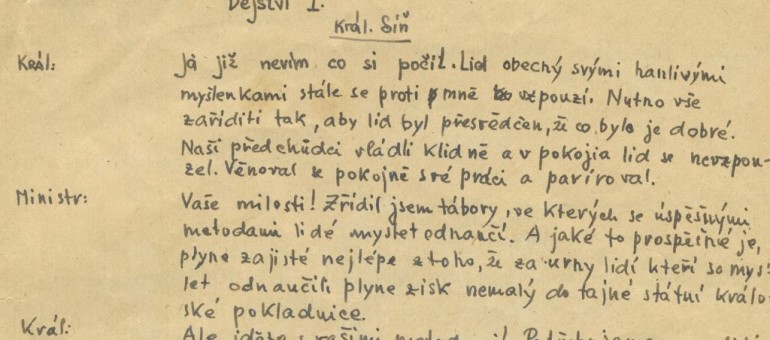 Dějství I.
Král. Síň
Král: Já již nevím co si počít. Lid obecný svými hanlivými
myšlenkami stále se proti mně vzpouzí. Nutno vše
zaříditi tak, aby lid byl přesvědčen, ži co bylo je dobré.
Naši předchůdci vládli klidně a v pokoji a lid se nevzpou-
zel. Věnoval se pokojně své práci a paríroval.
Ministr: Vaše milosti! Zřídil jsem tábory, ve kterých se úspěšnými
metodami lidé myslet odnaučí. A jaké to prospěšné je,
plyne zajisté nejlépe z toho, ži za urny lidí kteří se mys
let odnaučili plyne zisk nemalý do tajné státní králo
ské pokladnice.
Král: Ale